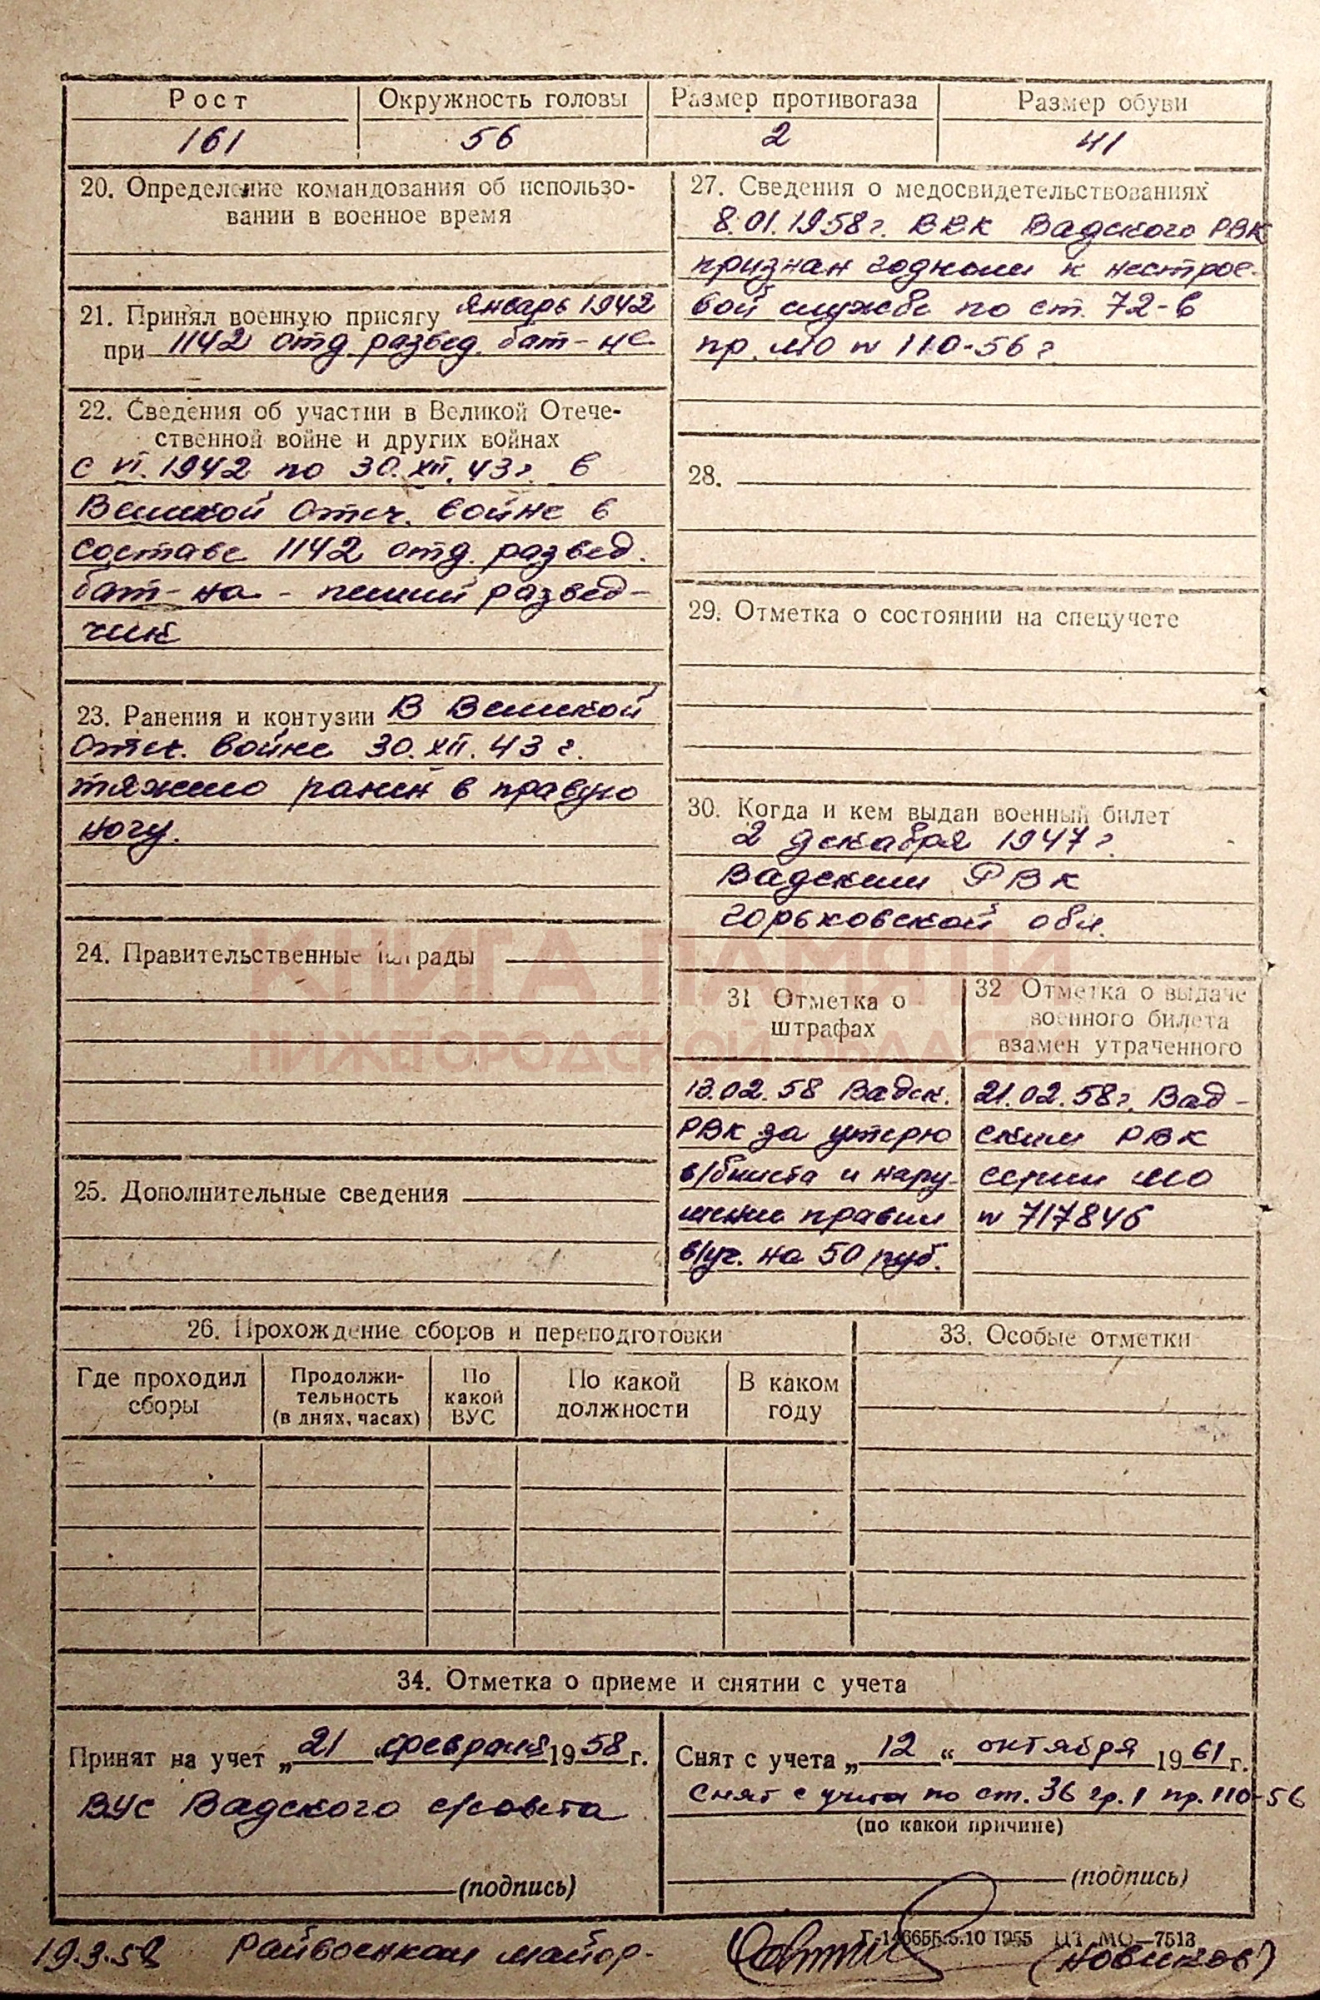 Рост Окружность головы Размер противогаза Размер обуви
161 56 2 41
20. Определение командования об использо-
вании в военное время
21. Принял военную присягу январь 1942
при 1142 отд. развед. бат-не
22. Сведения об участии в Великой Отече-
ственной войне и других войнах
с VI. 1942 по 30. XII. 43 г. в
Великой Отеч. войне в
составе 1142 отд. развед.
бат-на - пеший развед-
чик
23. Ранения и контузии В Великой
Отеч. войне 30. XII. 43 г.
тяжело ранен в правую
ногу.
24. Правительственные награды
25. Дополнительные сведения
27. Сведения о медосвидетельствованиях
8.01.1958 г. ВВК Вадского РВК
признан годным к нестрое-
вой службе по ст. 72-в
пр. МО № 110-56 г
28.
29. Отметка о состоянии на спецучете
30. Когда и кем выдан военный билет
2 декабря 1947 г.
Вадским РВК
Горьковской обл.
КНИГА ПАМЯТИ
НИЖЕГОРОДСКОЙ ОБЛАСТИ
31 Отметка о
штрафах
13.02.58 Вадск.
РВК за утерю
в/билета и нару-
шение правил
в/уч. на 50 руб.
32 Отметка о выдаче
военного билета
взамен утраченного
21.02.58 г. Вад-
ским РВК
серии МО
№ 717846
26. Прохождение сборов и переподготовки
Где проходил
сборы
Продолжи-
тельность
(в днях, часах)
По
какой
ВУС
По какой
должности
В каком
году
33. Особые отметки
34. Отметка о приеме и снятии с учета
Принят на учет „21 “ февраля 1958 г.
ВУС Вадского с/совета
(подпись)
Снят с учета „ 12 “ октября 1961 г.
Снят с учета по ст. 36 гр. 1 пр. 110-56
(по какой причине)
(подпись)
Г-146655 5.10 1955 ЦТ МО—7513
19.3.58 Райвоенком майор- (Новиков)